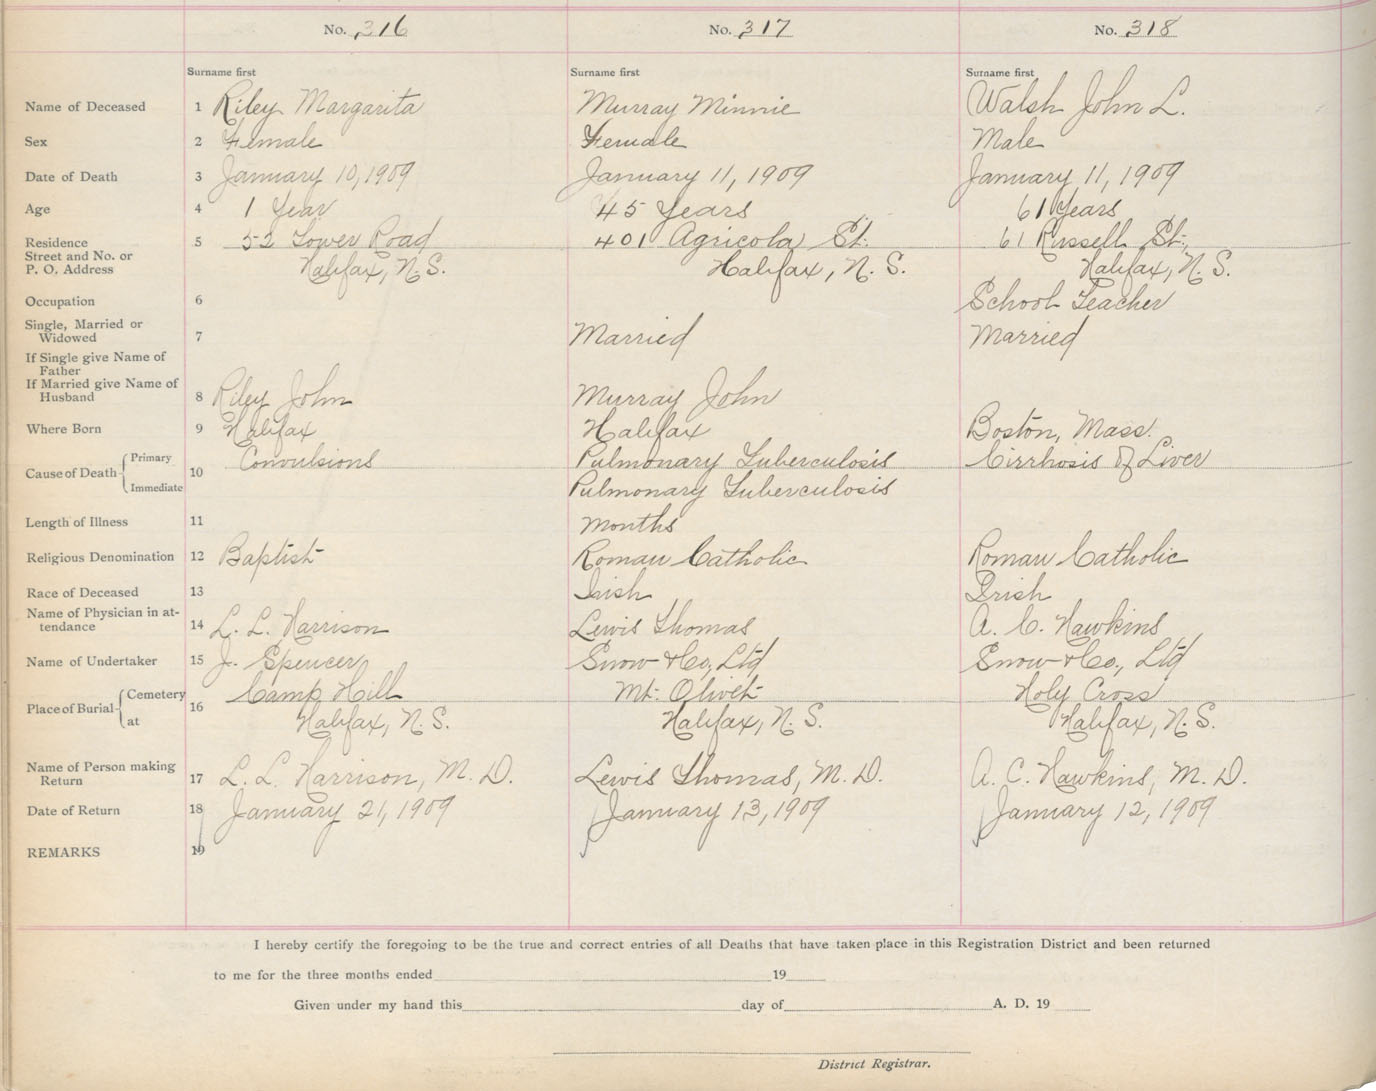 No. 316 No. 317 No. 318
Surname first Surname first Surname first
Name of Deceased 1 Riley Margarita Murray Minnie Walsh John L.
Sex 2 Female Female Male
Date of Death 3 January 10, 1909 January 11, 1909 January 11, 1909
Age 4 1 Year 45 Years 61 Years
Residence 5 52 Tower Road 401 Agricola St. 61 Russell St.,
Street and No. or
P. O. Address Halifax, N.S. Halifax, N. S. Halifax, N. S.
Occupation 6 School Teacher
Single, Married or
Widowed 7 Married Married
If Single give Name of
Father
If Married give Name of
Husband 8 Riley John Murray John
Where Born 9 Halifax Halifax Boston, Mass.
Cause of Death Primary 10 Convulsions Pulmonary Tuberculosis Cirrhosis Of Liver
Immediate Pulmonary Tuberculosis
Length of Illness 11 months
Religious Denomination 12 Baptist Roman Catholic Roman Catholic
Race of Deceased 13 Irish Irish
Name of Physician in at-
tendance 14 L. L. Harrison Lewis Thomas A. C. Hawkins
Name of Undertaker 15 J. Spencer Snow & Co, Ltd Snow & Co., Ltd
Place of Burial Cemetery 16 Camp Hill Mt. Olivet Holy Cross
at Halifax, N. S. Halifax, N. S. Halifax, N. S.
Name of Person making
Return 17 L. L. Harrison, M. D. Lewis Thomas, M. D. A. C. Hawkins, M. D.
Date of Return 18 January 21, 1909 January 13, 1909 January 12, 1909
REMARKS 19
I hereby certify the foregoing to be the true and correct entries of all Deaths that have taken place in this Registration District and been returned
to me for the three months ended 19
Given under my hand this day of A. D. 19
District Registrar.